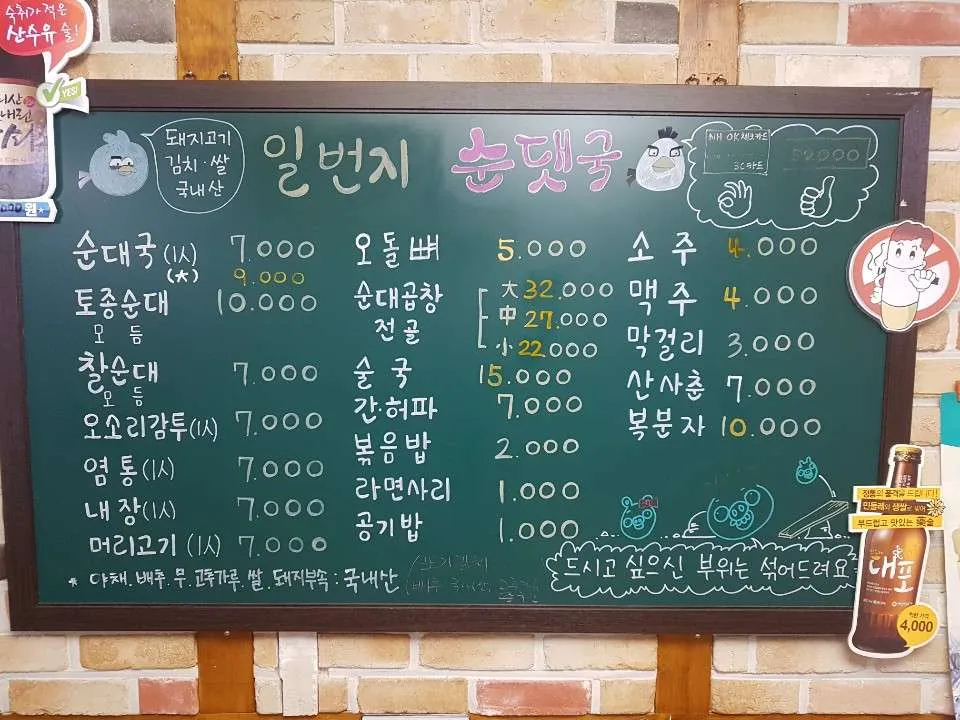 숙취가 적은
산수유 술!
YES!
돼지고기
김치·쌀
국내산
일번지 순댓국
NH OK체크카드
32,000
순대국(1人) 7.000
(大) 9.000
토종순대 10.000
모듬
찰순대 7.000
모듬
오소리감투(1人) 7.000
염통(1人) 7.000
내장(1人) 7.000
머리고기(1人) 7.000
오돌뼈 5.000
순대곱창 大 32.000
전골 中 27.000
小 22.000
술국 15.000
간.허파 7.000
볶음밥 2.000
라면사리 1.000
공기밥 1.000
소주 4.000
맥주 4.000
막걸리 3.000
산사춘 7.000
복분자 10.000
* 야채.배추.무.고추가루.쌀.돼지부속:국내산
드시고 싶으신 부위는 섞어드려요
부드럽고 맛있는
대포
4,000